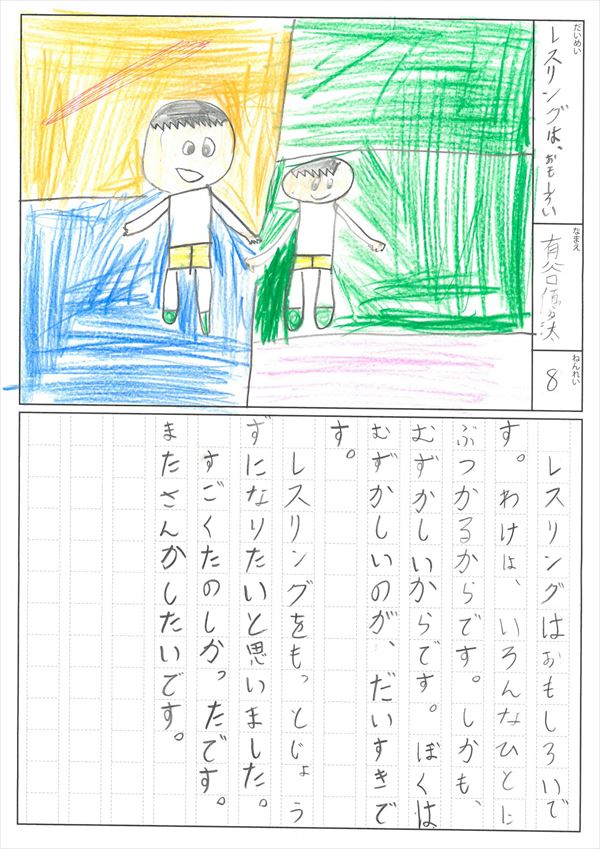 だいめい
レスリングは、おもしろい
なまえ
ねんれい
8
レスリングはおもしろいで
す。わけは、いろんなひとに
ぶつかるからです。しかも、
むずかしいからです。ぼくは
むずかしいのが、だいすきで
す。
レスリングをもっとじょう
ずになりたいと思いました。
すごくたのしかったです。
またさんかしたいです。